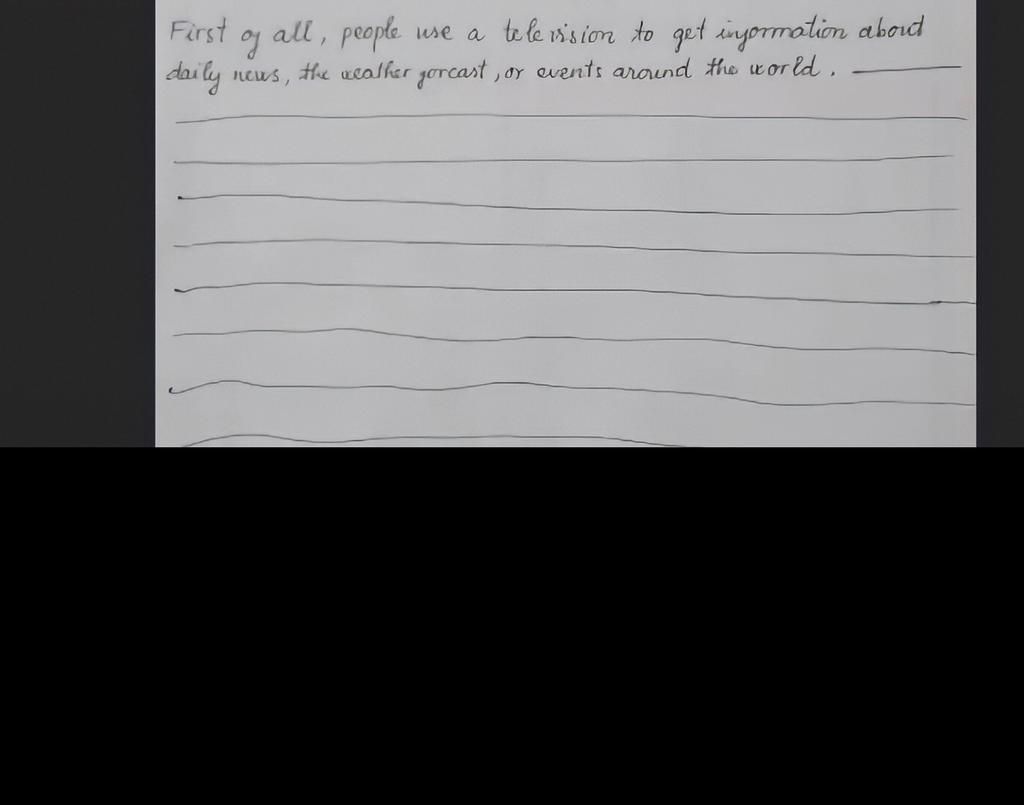 First of all, people use a television to get information about
daily news, the weather forcast, or events around the world.